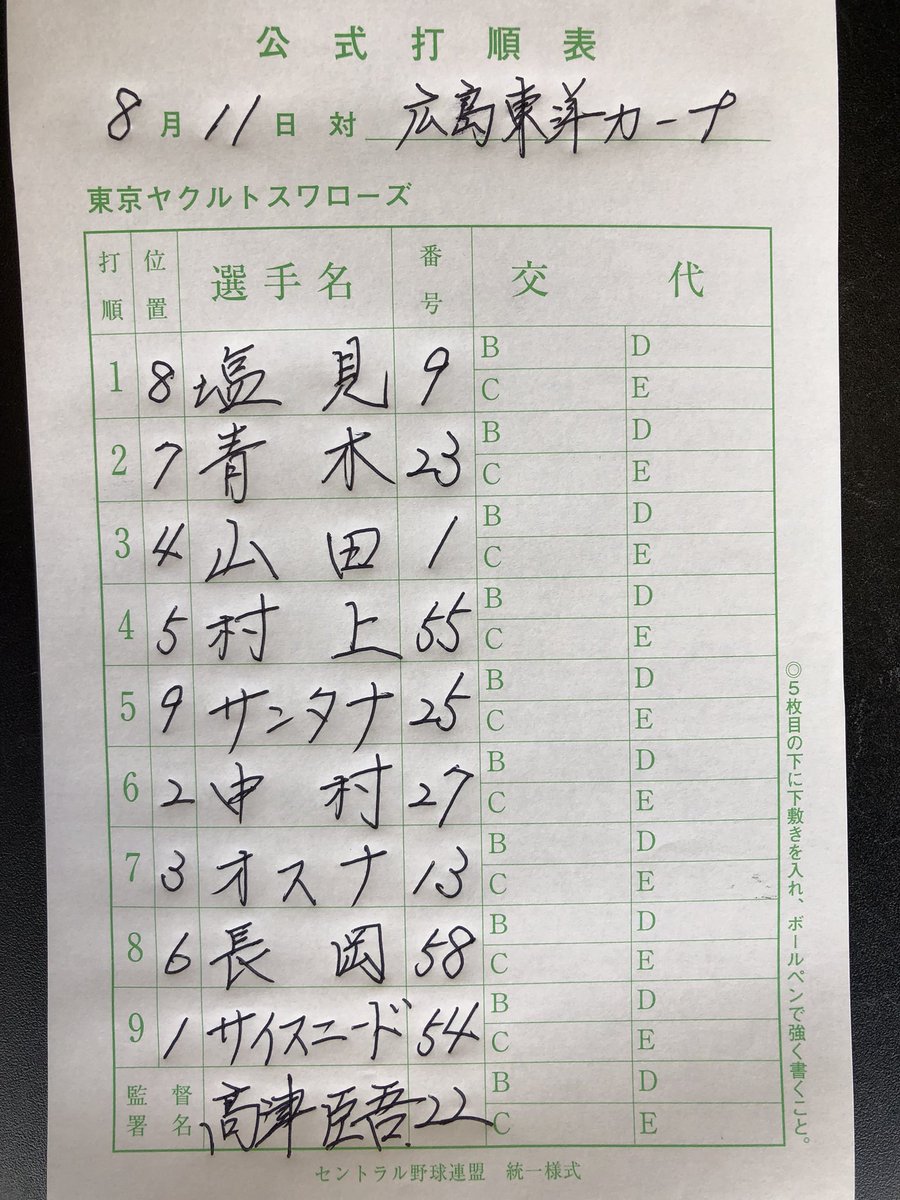 公式打順表
8月11日 対 広島東洋カープ
東京ヤクルトスワローズ
打順 位置 選手名 番号 交代
1 8 塩見 9 B D
C E
2 7 青木 23 B D
C E
3 4 山田 1 B D
C E
4 5 村上 55 B D
C E
5 9 サンタナ 25 B D
C E
6 2 中村 27 B D
C E
7 3 オスナ 13 B D
C E
8 6 長岡 58 B D
C E
9 1 サイスニード 54 B D
C E
監督署名 高津臣吾 22 B D
C E
◎5枚目の下に下敷きを入れ、ボールペンで強く書くこと。
セントラル野球連盟 統一様式